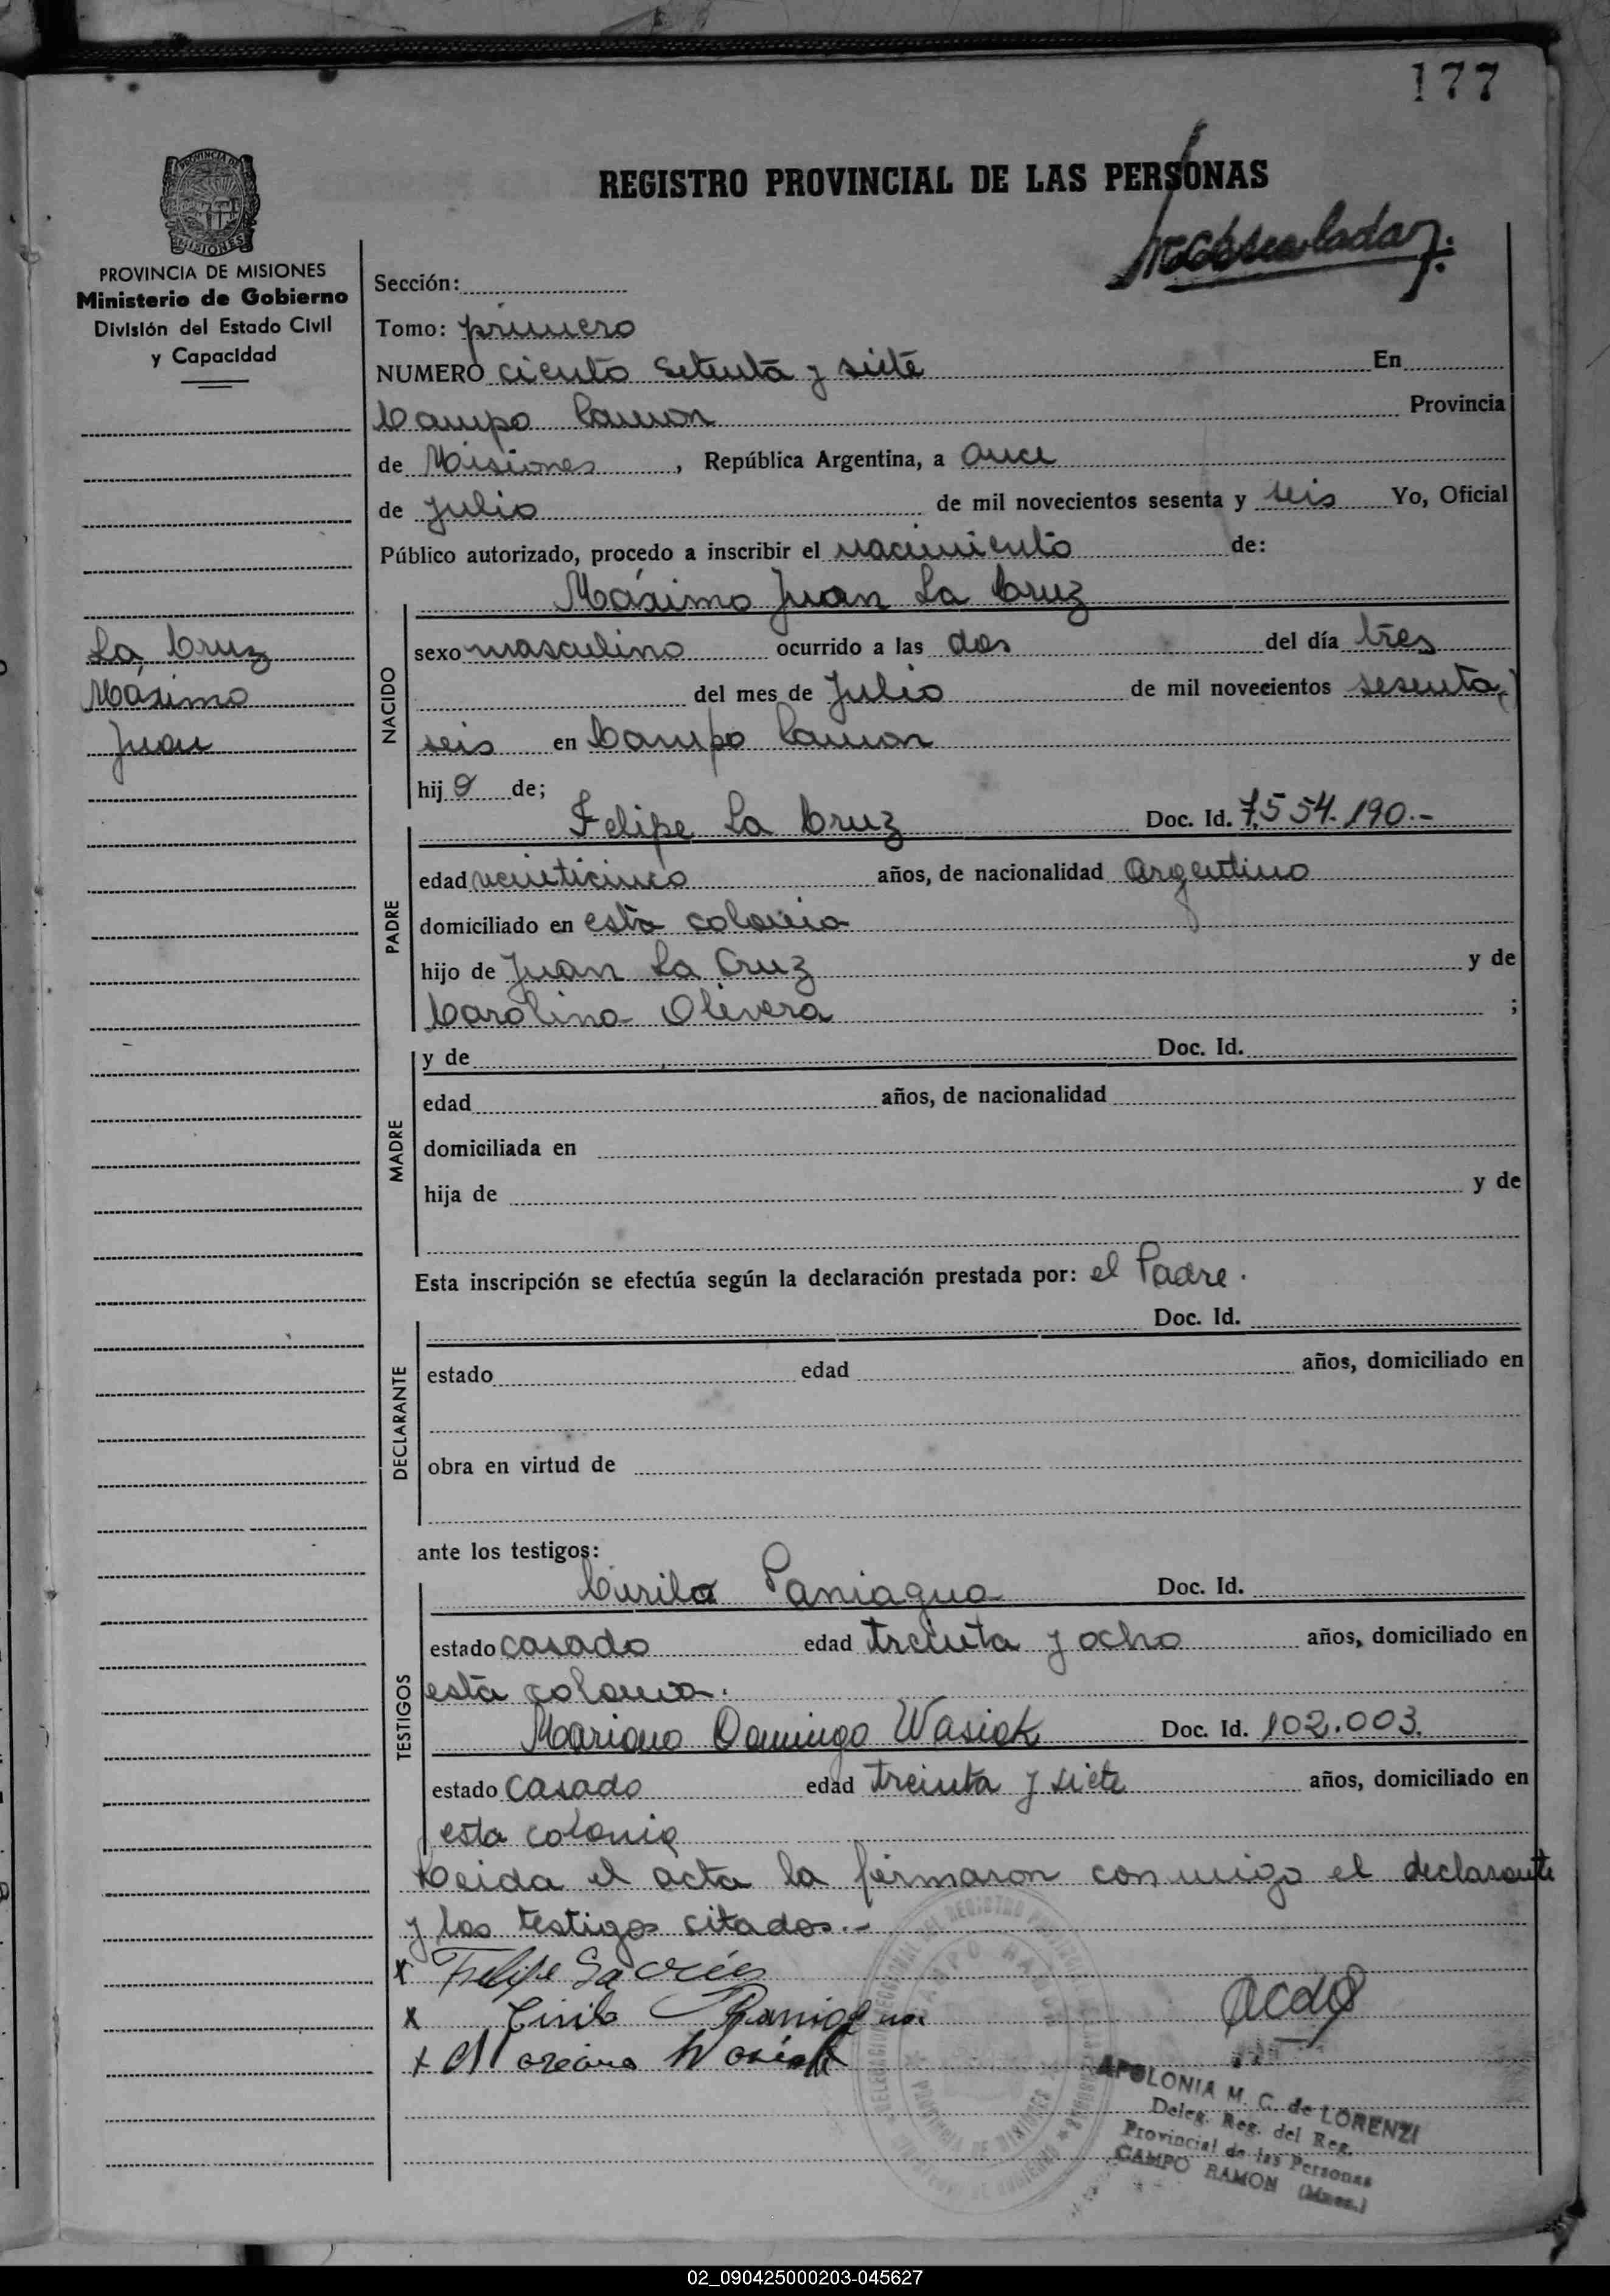 177
REGISTRO PROVINCIAL DE LAS PERSONAS
PROVINCIA DE MISIONES
Ministerio de Gobierno
División del Estado Civil
y Capacidad
La Cruz
Máximo
Juan
Sección:
Tomo: primero
NUMERO ciento setenta y siete En
Campo Ramon Provincia
de Misiones, República Argentina, a once
de Julio de mil novecientos sesenta y seis Yo, Oficial
Público autorizado, procedo a inscribir el nacimiento de:
Máximo Juan La Cruz
NACIDO
sexo masculino ocurrido a las dos del día tres
del mes de Julio de mil novecientos sesenta y
seis en Campo Ramon
hijo de;
Felipe La Cruz Doc. Id. 7.554.190.-
PADRE
edad veinticinco años, de nacionalidad Argentino
domiciliado en esta colonia
hijo de Juan La Cruz y de
Carolina Olivera ;
MADRE
y de Doc. Id.
edad años, de nacionalidad
domiciliada en
hija de y de
Esta inscripción se efectúa según la declaración prestada por: el Padre.
DECLARANTE
Doc. Id.
estado edad años, domiciliado en
obra en virtud de
ante los testigos:
TESTIGOS
Cirilo Paniagua Doc. Id.
estado casado edad treinta y ocho años, domiciliado en
esta colonia.
Mariano Domingo Wasiak Doc. Id. 102.003.
estado casado edad treinta y siete años, domiciliado en
esta colonia
Leida el acta la firmaron conmigo el declarante
y los testigos citados.-
x Felipe La Cruz
x Cirilo Paniagua
x Mariano Wasiak
APOLONIA M. C. de LORENZI
Deleg. Reg. del Reg.
Provincial de las Personas
CAMPO RAMON (Mnes.)
02_090425000203-045627